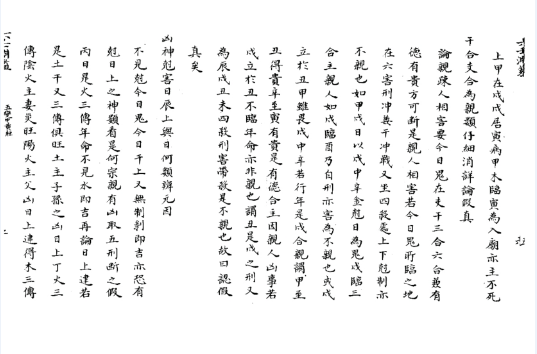 上甲在戌戌居寅病甲木臨寅為入廟亦主不死
干合支合為親類仔細消詳論政真
論親疎人相害要今日鬼在支干三合六合兼有
德有貴方可斷是親人相害若今日鬼所臨之地
在六害刑冲并干冲戰又空四殺處上下尅制亦
不親也如甲戌日以戌申辛金尅日為鬼戌臨三
合主親人如戌臨酉乃自刑亦害為不親也或戌
立於丑甲雖畏戌申辛若行年是戌合親謂甲至
丑得貴辛至寅有貴是有德合主因親人凶事若
成立於丑不臨年命亦非親也謂丑是戌之刑又
為辰戌丑未四殺刑害帶殺是不親也故曰認假
真矣
凶神尅害日辰上與日何類辨元因
不見尅今日鬼今日干上又無制刹即吉亦忽有
尅日上之神類看是何宗親有凶取五刑斷之假
丙日是火三傳年命不見水即吉再論日上逢若
是土干又三傳俱旺土主子孫之凶日上丁火三
傳陰火主妻災旺陽火主父凶日上逢得木三傳